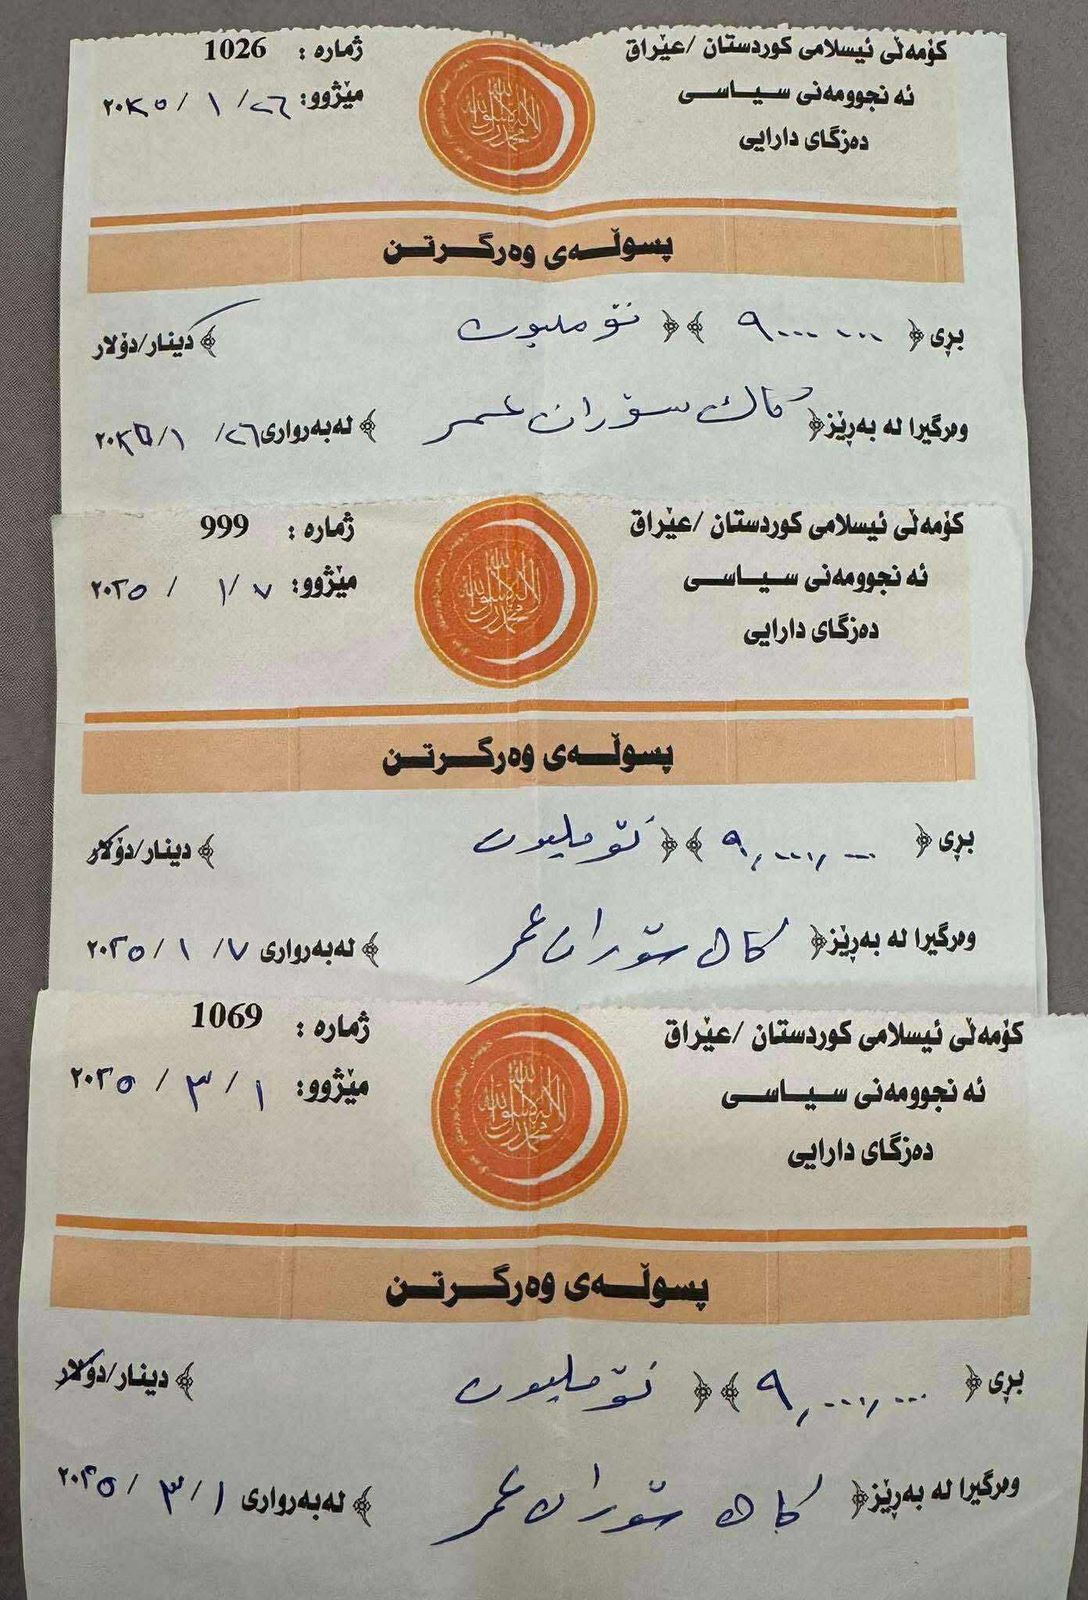 کۆمەڵی ئیسلامی کوردستان /عێراق
ژمارە : 1026
ئەنجوومەنی سیاسی
مێژوو: ٢٠٢٥ / ١ / ٢٦
دەزگای دارایی
لا إله إلا الله محمد رسول الله
پسوڵەی وەرگرتن
بڕی ﴿ ٩٠٠٠٠٠٠ ﴾﴿ نۆ ملیون ﴾ دینار/دۆلار
وەرگیرا لە بەڕێز﴿ کاک سۆران عمر ﴾ لەبەرواری ٢٦/ ١/ ٢٠٢٥
کۆمەڵی ئیسلامی کوردستان /عێراق
ژمارە : 999
ئەنجوومەنی سیاسی
مێژوو: ٢٠٢٥ / ١ / ٧
دەزگای دارایی
لا إله إلا الله محمد رسول الله
پسوڵەی وەرگرتن
بڕی ﴿ ٩,٠٠٠,٠٠٠ ﴾﴿ نۆ ملیون ﴾ دینار/دۆلار
وەرگیرا لە بەڕێز﴿ کاک سۆران عمر ﴾ لەبەرواری ٧/ ١ / ٢٠٢٥
کۆمەڵی ئیسلامی کوردستان /عێراق
ژمارە : 1069
ئەنجوومەنی سیاسی
مێژوو: ١ / ٣ / ٢٠٢٥
دەزگای دارایی
لا إله إلا الله محمد رسول الله
پسوڵەی وەرگرتن
بڕی ﴿ ٩,٠٠٠,٠٠٠ ﴾﴿ نۆ ملیون ﴾ دینار/دۆلار
وەرگیرا لە بەڕێز﴿ کاک سۆران عمر ﴾ لەبەرواری ١ / ٣ / ٢٠٢٥